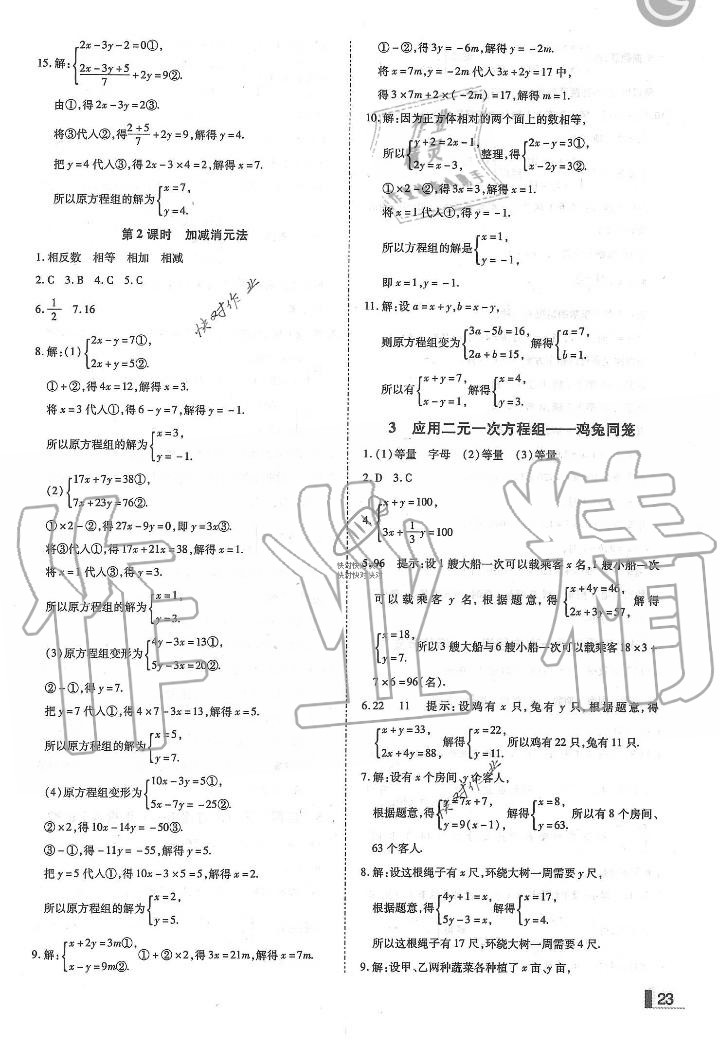 15.解:{2x-3y-2=0①,
(2x-3y+5)/7+2y=9②.
由①,得2x-3y=2③.
将③代入②,得(2+5)/7+2y=9,解得y=4.
把y=4代入③,得2x-3×4=2,解得x=7.
所以原方程组的解为{x=7, y=4.
第2课时 加减消元法
1.相反数 相等 相加 相减
2.C 3.B 4.C 5.C
6.1/2 7.16
8.解:(1){2x-y=7①, 2x+y=5②.
①+②,得4x=12,解得x=3.
将x=3代入①,得6-y=7,解得y=-1.
所以原方程组的解为{x=3, y=-1.
(2){17x+7y=38①, 7x+23y=76②.
①×2-②,得27x-9y=0,即y=3x③.
将③代入①,得17x+21x=38,解得x=1.
将x=1代入③,得y=3.
所以原方程组的解为{x=1, y=3.
(3)原方程组变形为{4y-3x=13①, 5y-3x=20②.
②-①,得y=7.
把y=7代入①,得4×7-3x=13,解得x=5.
所以原方程组的解为{x=5, y=7.
(4)原方程组变形为{10x-3y=5①, 5x-7y=-25②.
②×2,得10x-14y=-50③.
③-①,得-11y=-55,解得y=5.
把y=5代入①,得10x-3×5=5,解得x=2.
所以原方程组的解为{x=2, y=5.
9.解:{x+2y=3m①, x-y=9m②. ①+②×2,得3x=21m,解得x=7m.
①-②,得3y=-6m,解得y=-2m.
将x=7m,y=-2m代入3x+2y=17中,
得3×7m+2×(-2m)=17,解得m=1.
10.解:因为正方体相对的两个面上的数相等,
所以{y+2=2x-1, 2y=x-3, 整理,得{2x-y=3①, x-2y=3②.
①×2-②,得3x=3,解得x=1.
将x=1代入①,得y=-1.
所以方程组的解是{x=1, y=-1.
即x=1,y=-1.
11.解:设a=x+y,b=x-y,
则原方程组变为{3a-5b=16, 2a+b=15, 解得{a=7, b=1.
所以有{x+y=7, x-y=1, 解得{x=4, y=3.
3 应用二元一次方程组——鸡兔同笼
1.(1)等量 字母 (2)等量 (3)等量
2.D 3.C
4.{x+y=100, 3x+1/3y=100
5.96 提示:设1艘大船一次可以载乘客x名,1艘小船一次
可以载乘客y名,根据题意,得{x+4y=46, 2x+3y=57, 解得
{x=18, y=7. 所以3艘大船与6艘小船一次可以载乘客18×3+
7×6=96(名).
6.22 11 提示:设鸡有x只,兔有y只,根据题意,得
{x+y=33, 2x+4y=88, 解得{x=22, y=11. 所以鸡有22只,兔有11只.
7.解:设有x个房间,y个客人,
根据题意,得{y=7x+7, y=9(x-1), 解得{x=8, y=63. 所以有8个房间、
63个客人.
8.解:设这根绳子有x尺,环绕大树一周需要y尺,
根据题意,得{4y+1=x, 5y-3=x, 解得{x=17, y=4.
所以这根绳子有17尺,环绕大树一周需要4尺.
9.解:设甲、乙两种蔬菜各种植了x亩、y亩,
23
作业精
快对作业
快对作业